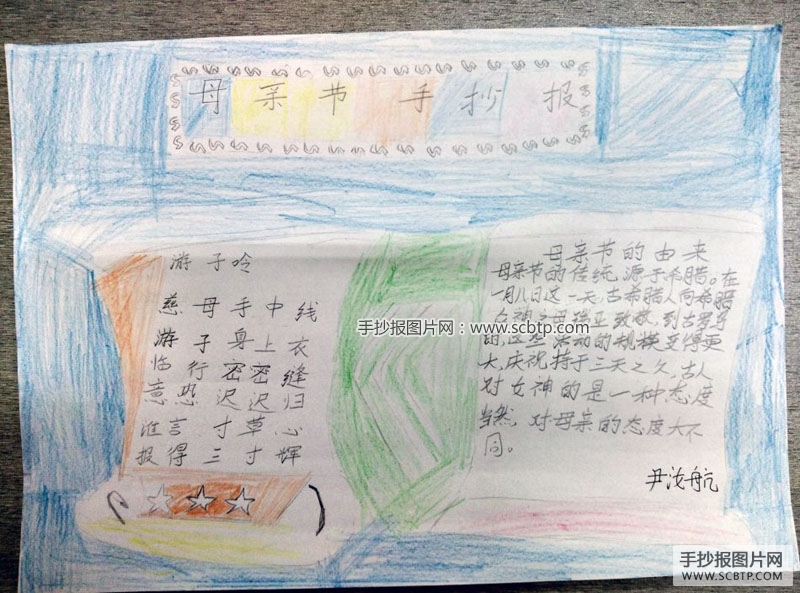 母亲节手抄报
游子吟
慈母手中线
游子身上衣
临行密密缝
意恐迟迟归
谁言寸草心
报得三寸辉
母亲节的由来
母亲节的传统,源于希腊。在
一月八日这一天,古希腊人向希腊
女神之母瑞亚致敬,到古罗马
时,这些活动的规模变得更
大,庆祝持于三天之久,古人
对女神的是一种态度
当然,对母亲的态度大不
同。
尹汝航
手抄报图片网:www.scbtp.com
手抄报图片网
WWW.SCBTP.COM